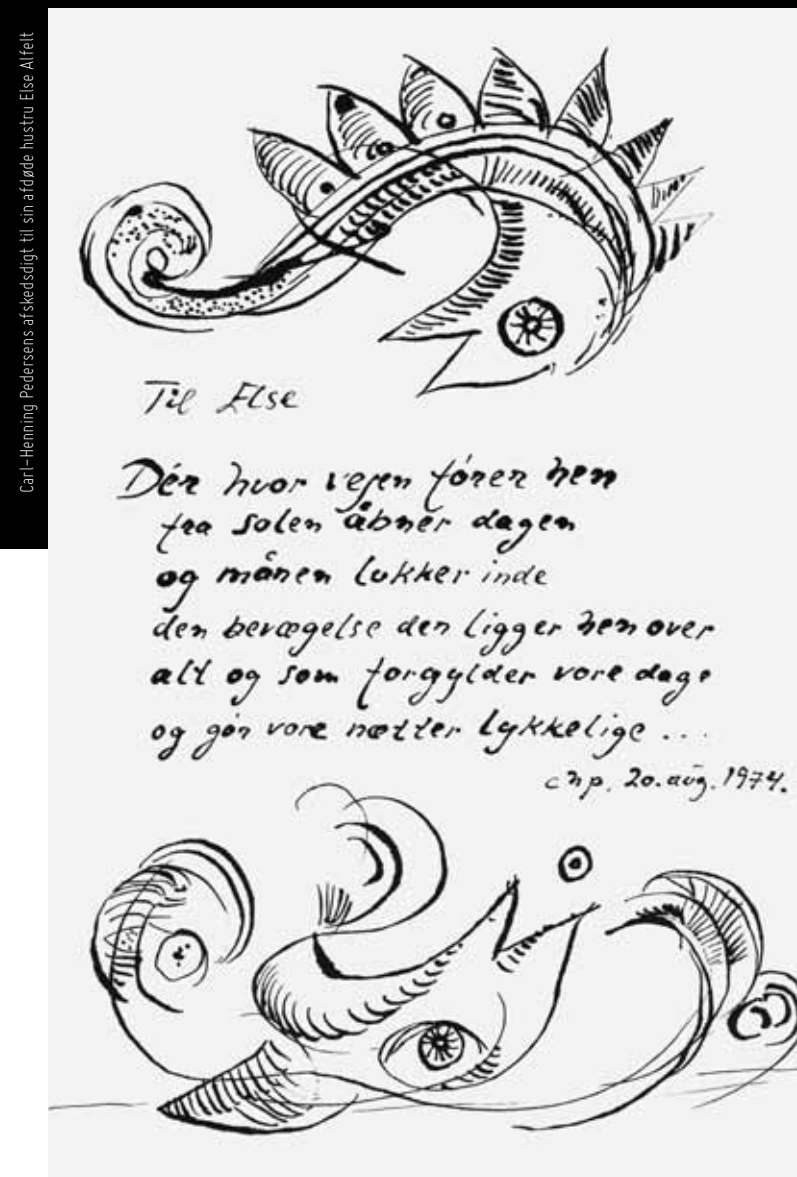 Carl-Henning Pedersens afskedsdigt til sin afdøde hustru Else Alfelt
Til Else
Dér hvor vejen fører hen
fra solen åbner dagen
og månen lukker inde
den bevægelse der ligger hen over
alt og som forgylder vore dage
og gør vore nætter lykkelige ...
chp. 20. aug. 1974.